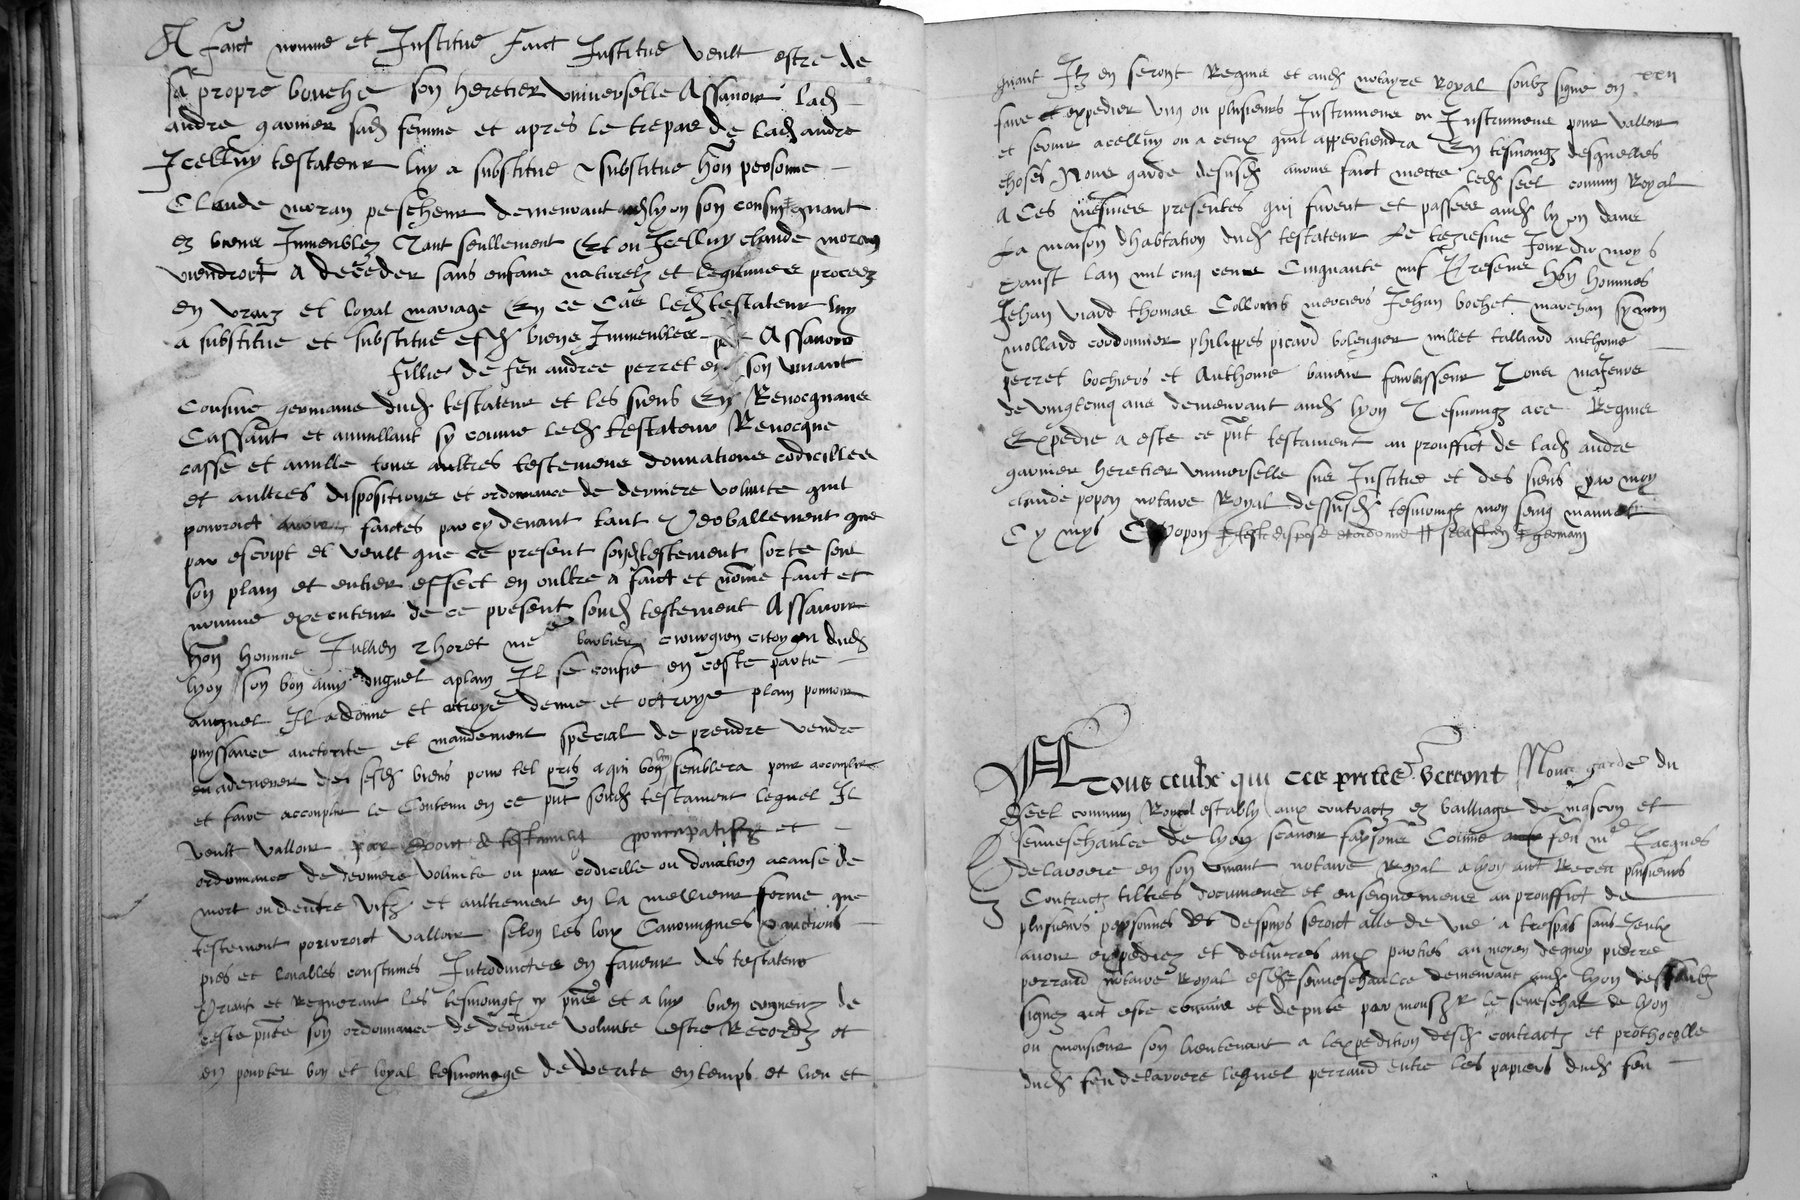 A faict nomme et Institue faict Institue veult estre de
sa propre bouche son heretier universelle Assavoir lad
andre garnier sad femme et apres le trepas de lad andre
Icelluy testateur luy a substitue substitue hon persone
Claude moran pescheur demeurant lyon son cousin quant
es biens Immeubles Tant seullement Et ou Icelluy claude moran
viendroict A deceder sans enfans naturelz et legitimes proceez
en vray et loyal mariage En ce Cas led testateur luy
a substitue et substitue esd biens Immeubles Assavoir
fillie de feu andree perret en son vivant
Cousine germaine dud testateur et les siens En Revocquans
Cassant et annullant sy comme led testateur Revocque
casse et anulle tous aultres testemens donnations codicilles
et aultres dispositions et ordonnance de derniere volunte quil
pourroict avoir faictes par cy devant tant Verballement que
par escript et veult que ce present sond testement sorte son
son plain et entier effect en oultre a faict et nome faict et
nomme executeur de ce present sond testement Assavoir
hon homme Jullien Thoret me barbier cirurgien citoyen dud
lyon son bon amy duquel aplain Il se confie en ceste partie
auquel Il a done et otroye donne et octroye plain pouvoir
puyssance auctorite et mandement special de prendre vendre
ou adenerer des sesd biens pour tel pris a qui bon luy semblera pour accomplir
et faire accomplir le Contenu en ce pnt sond testament lequel Il
veult valloir par et
ordonnance de derniere volunte ou par codicille ou donation a cause de
mort ou dentre vifz et aultrement en la mellieur forme que
testement pourroict valloir selon les loix Canonicques sanctions
pies et louables coustumes Introductes en faveur des testateurs
Priant et Requerant les tesmoingtz cy pns et a luy bien cogneuz de
ceste pnte son ordonnance de derniere volunte estre Recordz et
en pourter bon et loyal tesmoinage de verite en temps et lieu et
xxii
quant Ilz en seront Requis et aud notayre Royal soubz signe en
faire et expedier ung ou plusieurs Instrumens ou Instrumens pour valloir
et servir a celluy ou a ceux quil appertiendra En tesmoing desquelles
choses Nous garde desusd avons faict mectre led seel commun Royal
A Ces mesmes presentes qui furent et passees aud lyon dans
La maison dhabitation dud testateur Le trezieme Jour du moys
daust lan mil cinq cens Cinquante Presens hon hommes
Jehan viard thomas Collomb merciers Jehan bochet marchan symon
mollard cordonnier philippes picard bolengier millet talliard anthoine
perret bochiers et Anthoine fourbisseur Tous majeurs
de vingtcinq ans demeurant aud lyon Tesmoingz a ce Requis
Expedie a este ce pnt testament au prouffict de lad andre
garnier heretier universelle sus Institue et des siens par moy
claude popon notaire Royal dessusd tesmoing mon seing manuel
Cy mys C Popon
A Tous ceulx qui ces pntes verront Nous garde du
Seel commun Royal estably aux contractz es bailliage de mascon et
seneschaulcee de lyon scavoir faysons Comme feu me Jacques
delavoere en son vivant notaire Royal a lyon aict Receu plusieurs
Contractz tiltres documens et enseignemens au prouffict de
plusieurs personnes et despuys seroict alle de vie a trespas sans iceulx
avoir expediez et delivres aux parties au moyen dequoy pierre
perraud notaire Royal esd seneschaulcee demeurant aud lyon dessoubz
signez aict este commis et depute par mons le seneschal de lyon
ou monsieur son lieutenant a lexpedition desd contractz et prothocolle
dud feu delavoere lequel perraud entre les papiers dud feu